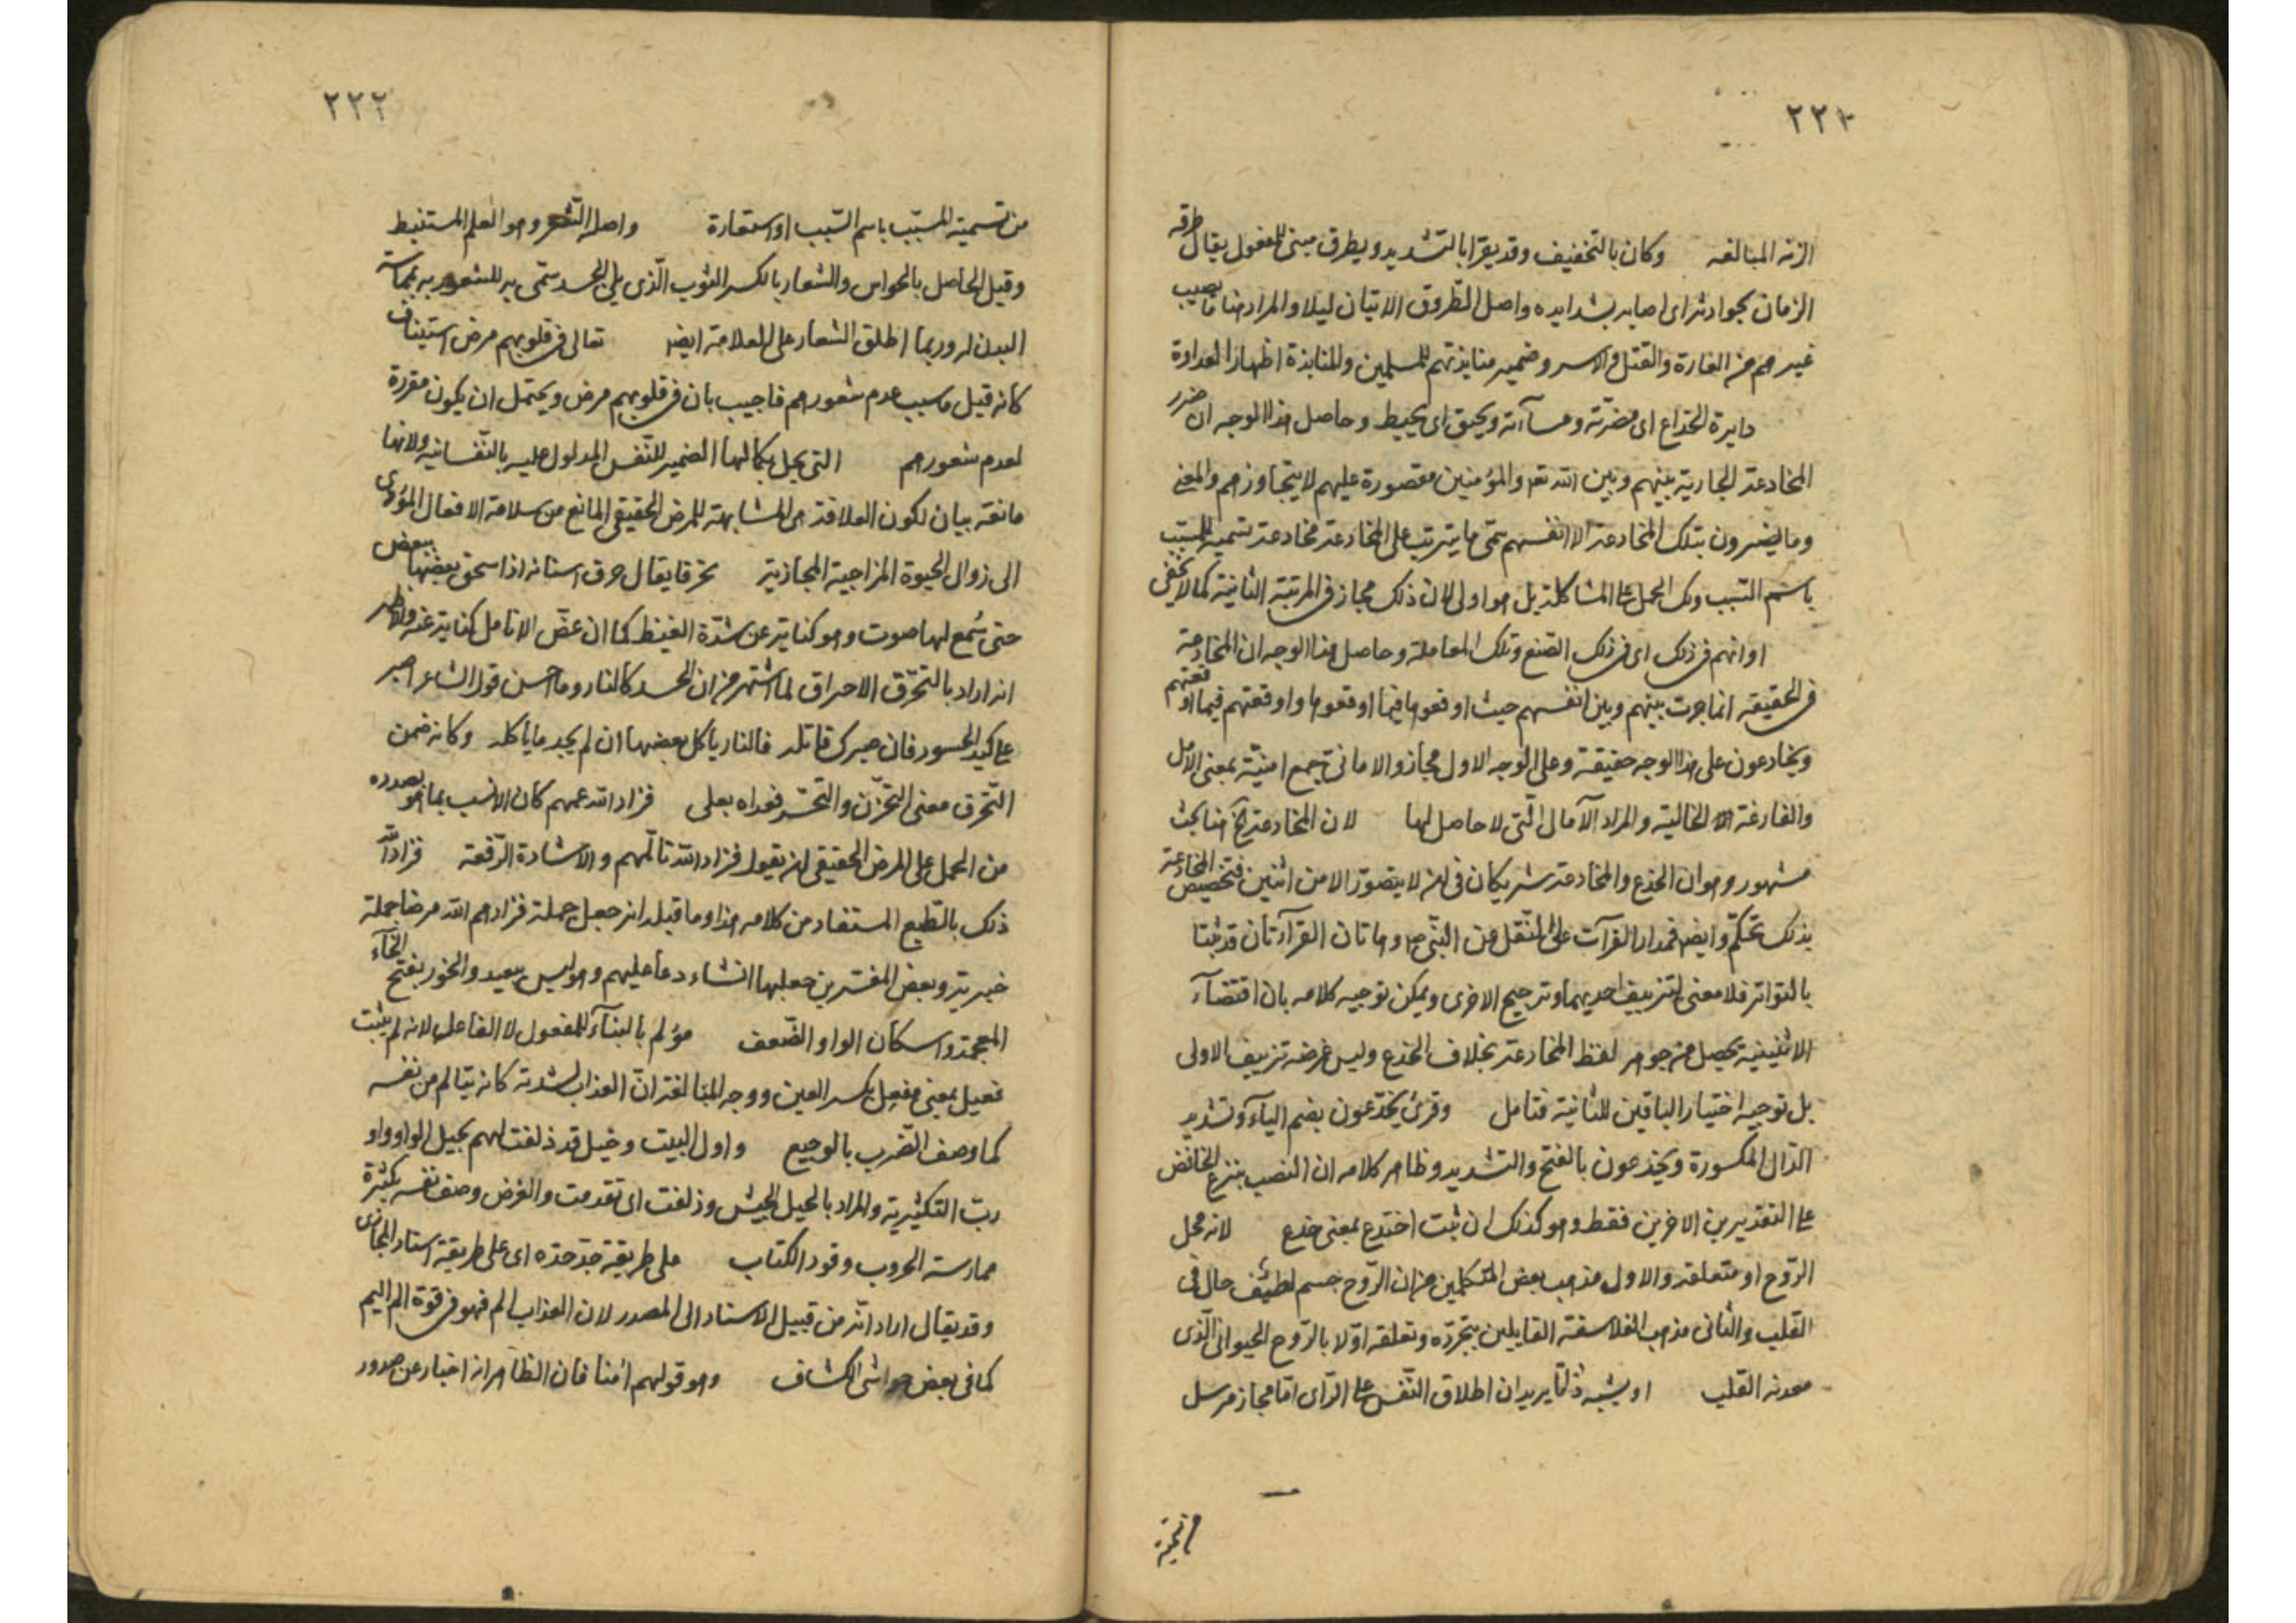 ٢٢٢
الزنة المبالغة وكان بالتخفيف وقد يقرأ بالتشديد ويطرق مبنى للمفعول يقال طرقه
الزمان بحوادثه اى اصابه بشدايده واصل الطروق الاتيان ليلا والمراد هنا ما يصيب
غيرهم من الغارة والقتل والاسر وضمير منابذتهم للمسلمين والمنابذة اظهار العداوة
دايرة الخداع اى مضرّته ومسآءته ويحيق اى يحيط وحاصل هذا الوجه ان ضرر
المخادعة الجارية بينهم وبين الله تع والمؤمنين مقصورة عليهم لا يتجاوزهم والمعنى
وما يضرون بتلك المخادعة الا انفسهم سمّى ما يترتب على المخادعة مخادعة تسمية للمسبّب
باسم السّبب ولك الحمل على المشاكلة بل هو اولى لان ذلك مجاز فى المرتبة الثانية كما لا يخفى
او انهم فى ذلك اى فى ذلك الصّنع وتلك المعاملة وحاصل هذا الوجه ان المخادعة
فى الحقيقة انما جرت بينهم وبين انفسهم حيث اوقعوها فيما اوقعوها واوقعتهم فيما اوقعتهم
ويخادعون على هذا الوجه حقيقة وعلى الوجه الاول مجاز والامانى جمع امنيّة بمعنى الامل
والفارغة الخالية والمراد الآمال الّتى لا حاصل لها لان المخادعة الخ هنا بحث
مشهور وهو ان الخدع والمخادعة شريكان فى انه لا يتصوّر الا من اثنين فتخصيص المخادعة
بذلك تحكّم وايضا فمدار القرآت على النّقل من النّبى ص وهاتان القرآءتان قد ثبتا
بالتواتر فلا معنى لتزييف احديهما وترجيح الاخرى ويمكن توجيه كلامه بان اقتضآء
الاثنينية يحصل من جوهر لفظ المخادعة بخلاف الخدع وليس غرضه تزييف الاولى
بل توجيه اختيار الباقين للثانية فتامل وقرئ يخدّعون بضم اليآء وتشديد
الدّال المكسورة ويخدعون بالفتح والتشديد وظاهر كلامه ان النصب بنزع الخافض
على التقديرين الاخرين فقط وهو كذلك ان ثبت اختدع بمعنى خدع لانه محل
الرّوح او متعلقه والاول مذهب بعض المتكلمين من ان الرّوح جسم لطيف حال فى
القلب والثانى مذهب الفلاسفة القايلين بتجرّده وتعلقه اوّلا بالرّوح الحيوانى الّذى
معدنه القلب او يشبه ذاتا يريد ان اطلاق النّفس على الرّاى امّا مجاز مرسل
٢٢٢
من تسمية المسبّب باسم السّبب او استعارة واصله الشعر وهو العلم المستنبط
وقيل الحاصل بالحواس والشعار بالكسر الثوب الّذى يلى الجسد سمّى به للشعور به بمماسة
البدن له وربما اطلق الشعار على العلامة ايض تعالى فى قلوبهم مرض استيناف
كانه قيل ما سبب عدم شعورهم فاجيب بان فى قلوبهم مرض ويحتمل ان يكون مقررة
لعدم شعورهم التى يخل بكمالها الضمير للنّفس المدلول عليه بالنّفسانية ولانها
مانعة بيان لكون العلاقة هى المشابهة للمرض الحقيقى المانع من سلامة الافعال المؤدى
الى زوال الحيوة المزاجية المجازية تحرقا يقال حرق اسنانه اذا سحق بعضها ببعض
حتى سُمع لها صوت وهو كناية عن شدّة الغيظ كما ان عضّ الانامل كناية عنه والاظهر
انه اراد بالتحرّق الاحراق لما اشتهر من ان الحسد كالنار وما احسن قول الشاعر اصبر
على كيد الحسود فان صبرك قاتله فالنار ياكل بعضها ان لم يجد ما ياكله وكانه ضمن
التّحرق معنى التحزّن والتحسّر فعداه بعلى فزاد الله غمهم كان الانسب بما هو بصدده
من الحمل على المرض الحقيقى ان يقول فزاد الله تالّمهم والاشادة الرّفعة فزاد الله
ذلك بالطّبع المستفاد من كلامه هذا وما قبله انه جعل جملة فزادهم الله مرضا جملة
خبرية وبعض المفسّرين جعلها انشاء دعا عليهم وهو ليس ببعيد والخور بفتح الخآء
المعجمة واسكان الواو الضّعف مؤلم بالبنآء للمفعول لا الفاعل لانه لم يثبت
فعيل بمعنى مفعِل بكسر العين ووجه المبالغة انّ العذاب لشدته كانه يتالم من نفسه
كما وصف الضّرب بالوجيع واول البيت وخيل قد دلفت لهم بخيل الواو واو
ربّ التكثيرية والمراد بالخيل الجيش ودلفت اى تقدمت والغرض وصف نفسه بكثرة
ممارسة الحروب وقود الكتاب على طريقة جدّ جدّه اى على طريقة اسناد المجازى
وقد يقال اراد انّه من قبيل الاسناد الى المصدر لان العذاب الم فهو فى قوة الم اليم
كما فى بعض حواشى الكشاف وهو قولهم امنا فان الظاهر انه اخبار عن صدور